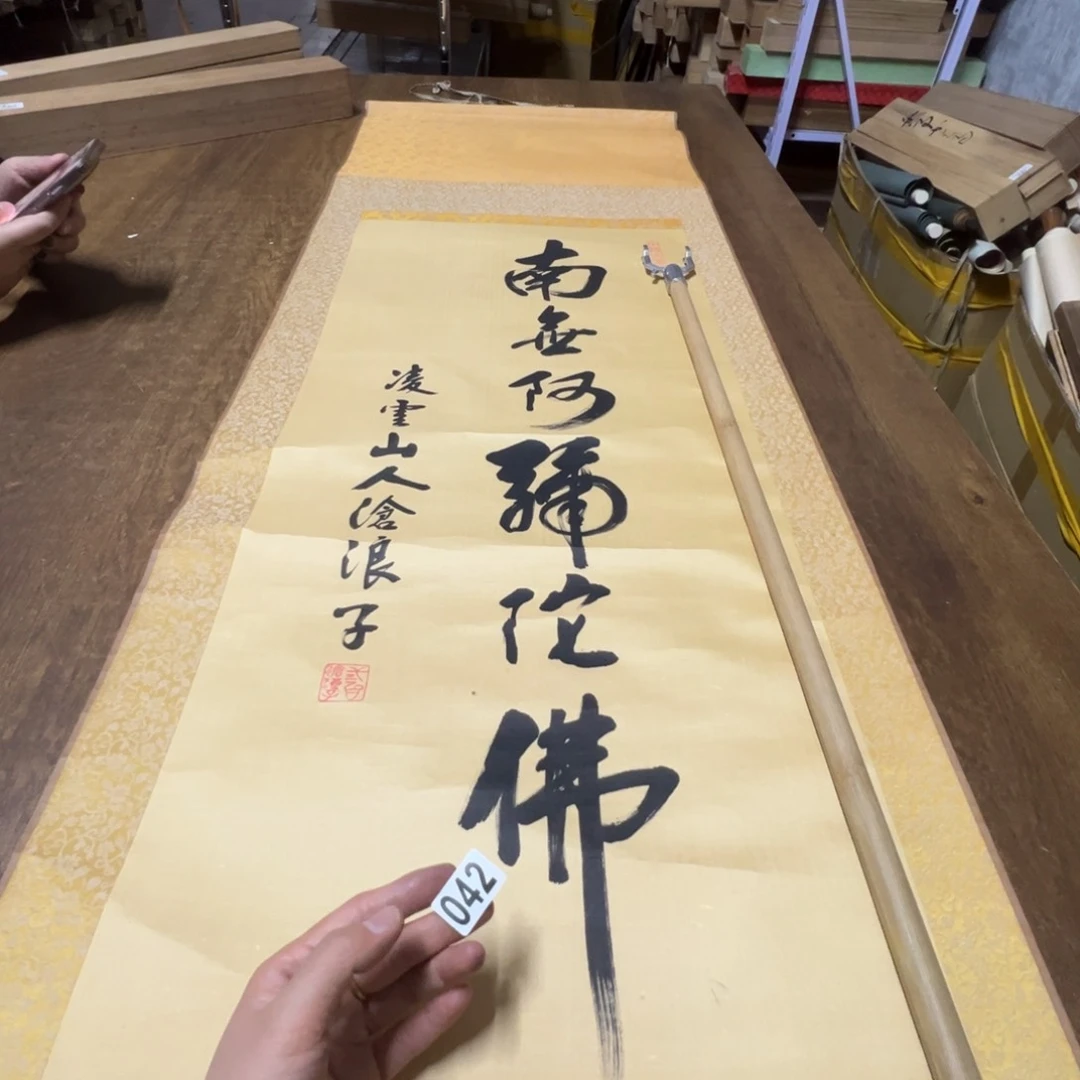 南無阿彌陀佛
凌雲山人滄浪子
042